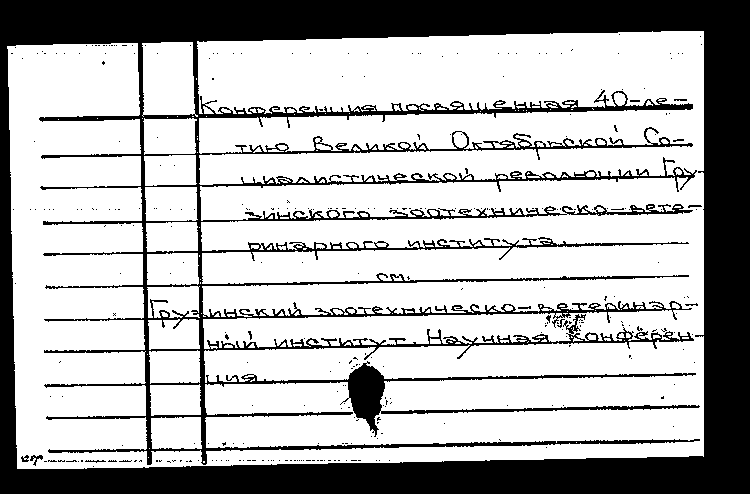 Конференция, посвященная 40-ле-
тию Великой Октябрьской Со-
циалистической революции Гру-
зинского зоотехническо-вете-
ринарного института.
см.
Грузинский зоотехническо-ветеринар-
ный институт. Научная конферен-
ция.